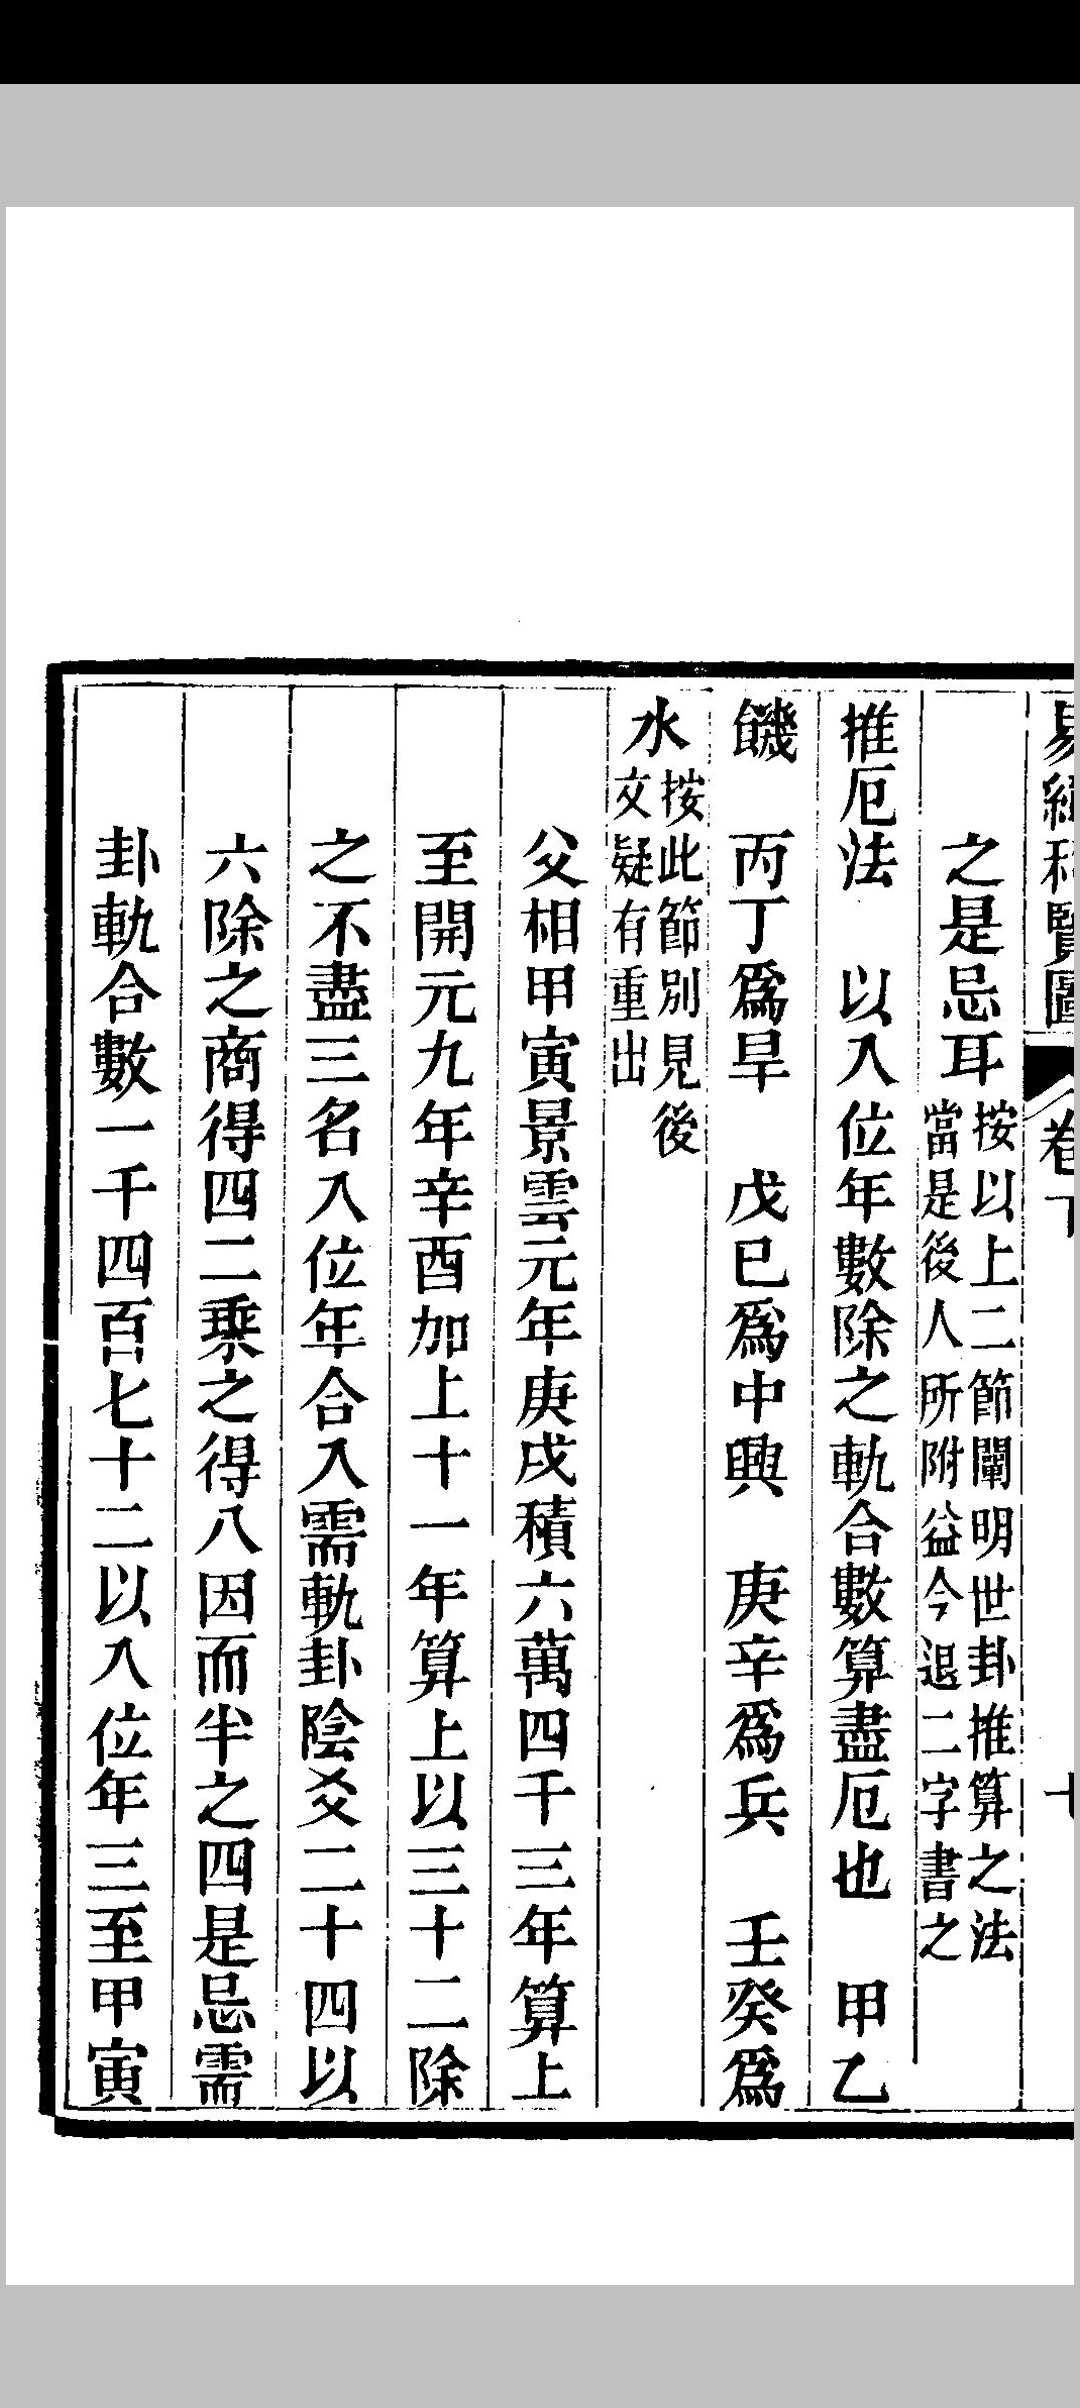 易緯稽覽圖 卷下 七
之是忌耳按以上二節闡明世卦推算之法當是後人所附益今退二字書之
推厄法 以入位年數除之軌合數算盡厄也 甲乙
饑 丙丁爲旱 戊巳爲中興 庚辛爲兵 壬癸爲
水按此節別見後文疑有重出
父相甲寅景雲元年庚戌積六萬四千三年算上
至開元九年辛酉加上十一年算上以三十二除
之不盡三名入位年合入需軌卦陰爻二十四以
六除之商得四二乘之得八因而半之四是忌需
卦軌合數一千四百七十二以入位年三至甲寅